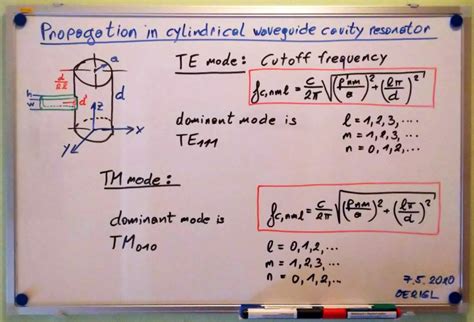 Propagation in cylindrical waveguide cavity resonator
TE mode: Cutoff frequency
f c,nml = c/2π √((p'nm/a)² + (lπ/d)²)
dominant mode is
TE111
l = 1,2,3,...
m = 1,2,3,...
n = 0,1,2,...
a
d
h
w
d
z
x
y
TM mode:
f c,nml = c/2π √((pnm/a)² + (lπ/d)²)
dominant mode is
TM010
l = 0,1,2,...
m = 1,2,3,...
n = 0,1,2,...
7.5.2010